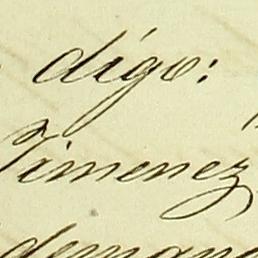 digo:
Jimenez